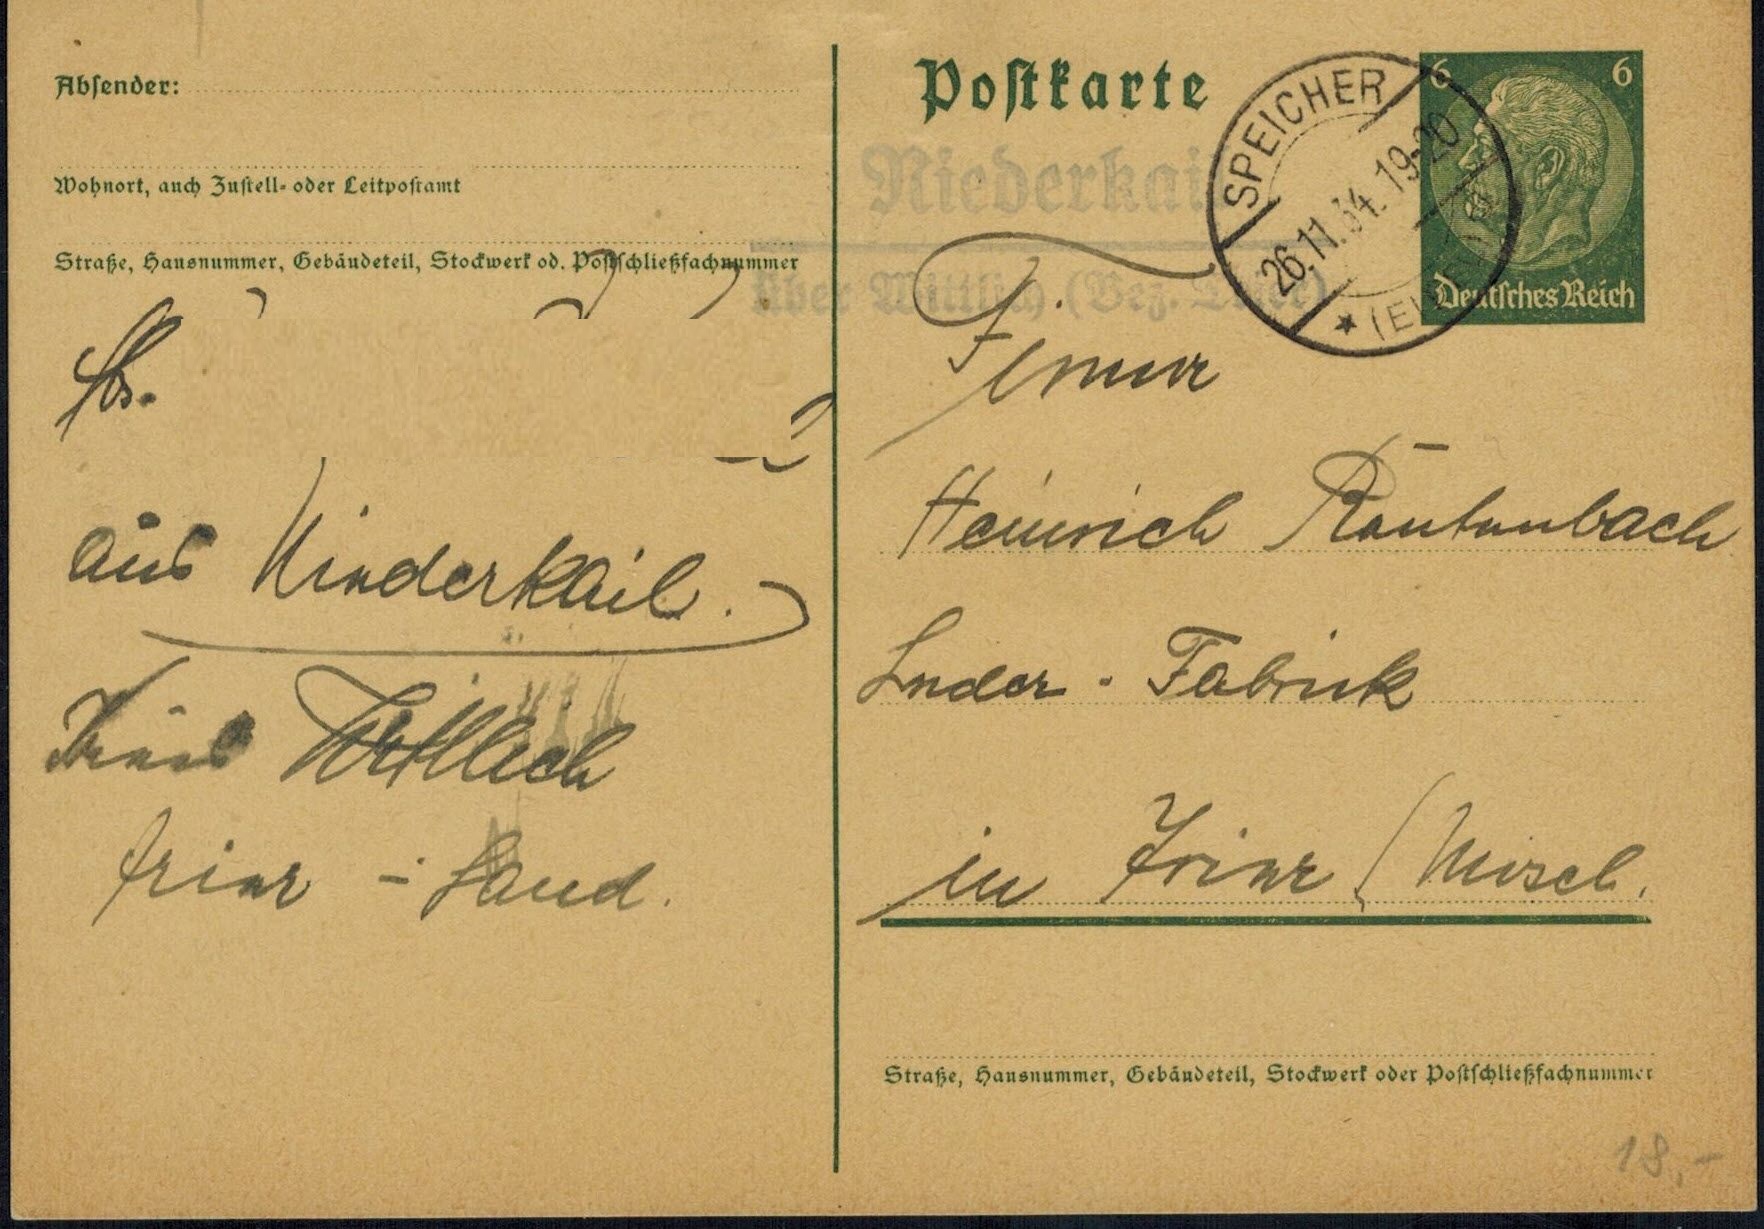 Absender:
Wohnort, auch Zustell- oder Leitpostamt
Straße, Hausnummer, Gebäudeteil, Stockwerk od. Postschließfachnummer
Abs.
aus Niederkail.
Kreis Wittlich
Trier - Land.
Postkarte
Niederkail
über Wittlich (Bez. Trier)
SPEICHER
26.11.34. 19-20
(EIFEL)
6 6
Deutsches Reich
Firma
Heinrich Rautenbach
Leder - Fabrik
in Trier (Mosel.
Straße, Hausnummer, Gebäudeteil, Stockwerk oder Postschließfachnummer
18,-